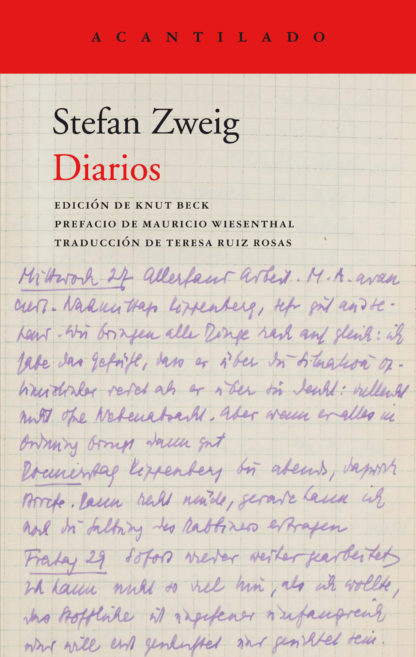 ACANTILADO
Stefan Zweig
Diarios
EDICIÓN DE KNUT BECK
PREFACIO DE MAURICIO WIESENTHAL
TRADUCCIÓN DE TERESA RUIZ ROSAS
Mittwoch 27 Allerhand Arbeit. M. A. avan
ciert. Nachmittags Kippenberg, sehr gut
Wir bringen alle Dinge rasch auf gleich: ich
habe das Gefühl, dass er über die Situation op-
timistischer redet als er über sie denkt: vielleicht
nicht ohne Nebenabsicht. Aber wenn er alles in
Ordnung bringt dann gut
Donnerstag Kippenberg bis abends, dazwischen
Dann recht müde, gerade kann ich
noch die Haltung des Rabbiners ertragen
Freitag 29 Sofort wieder weiter gearbeitet
Ich kann nicht so viel tun, als ich wollte,
das Stoffliche ist ungeheuer umfangreich
und will erst gesichtet sein.